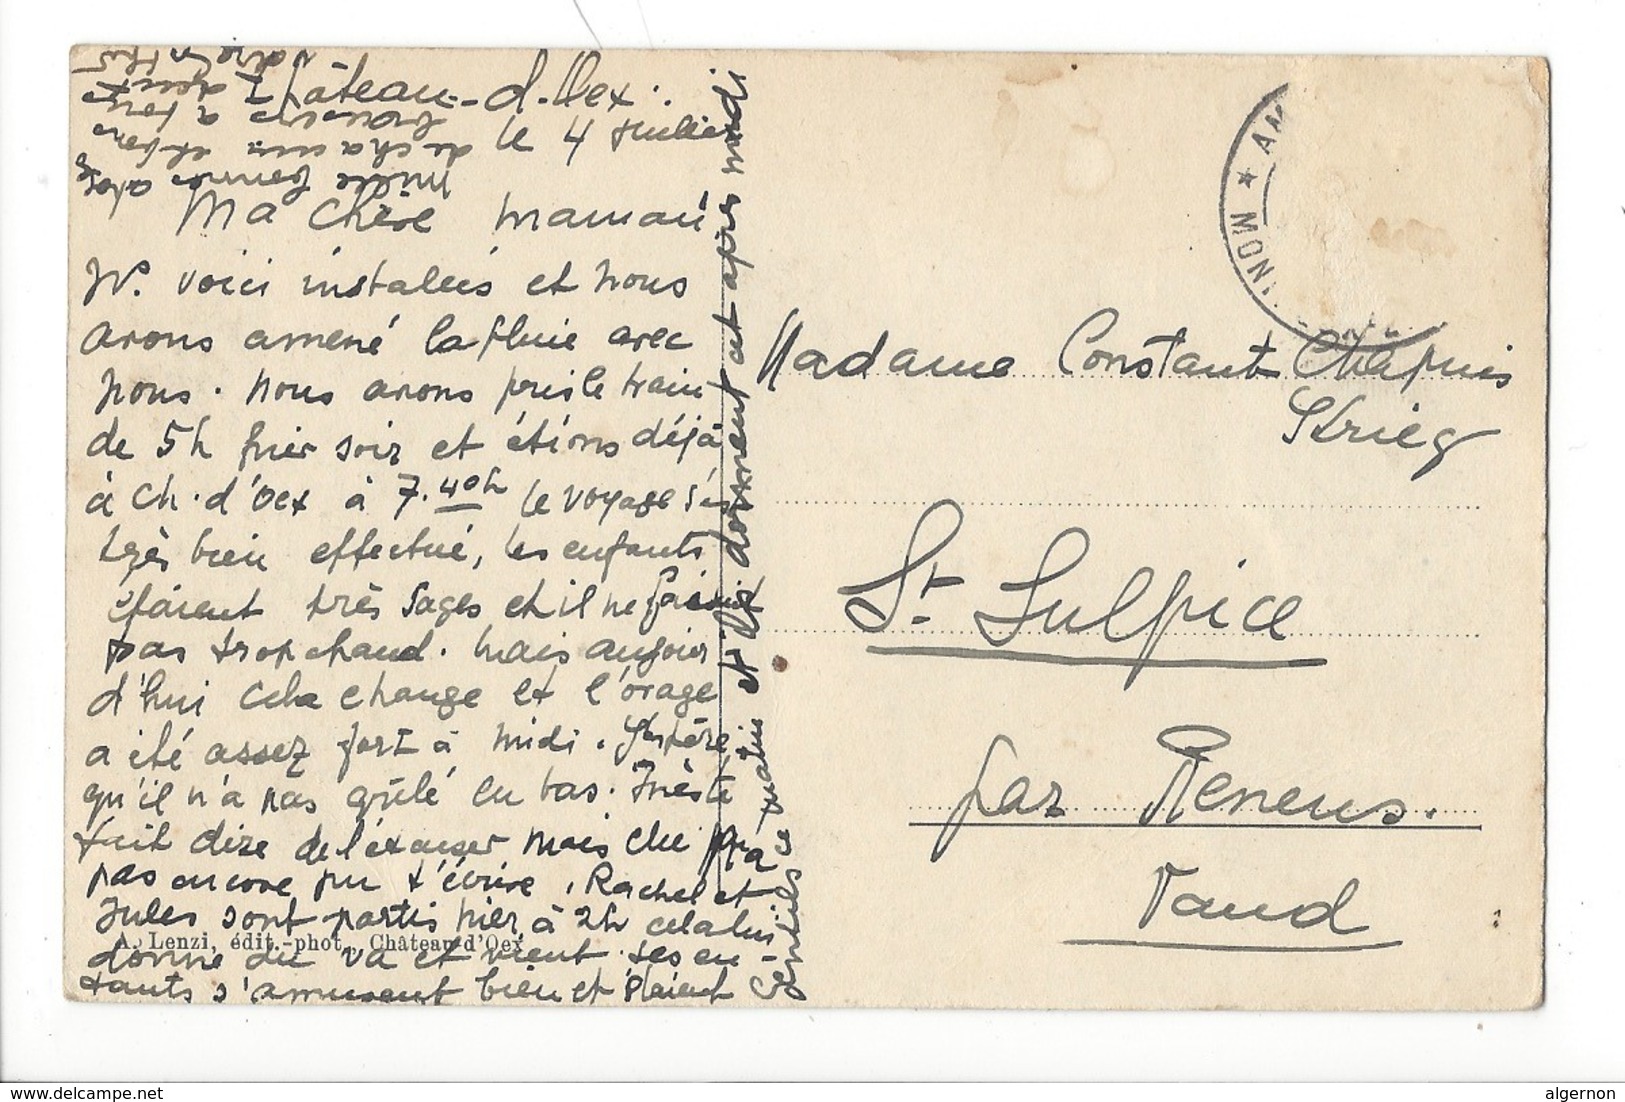 Château-d-Oex.
le 4 Juillet
Ma chère maman
Ns. voici installées et nous
avons amené la pluie avec
nous. Nous avons pris le train
de 5h hier soir et étions déjà
à Ch. d'Oex à 7.40h le voyage s'es
très bien effectué, les enfants
étaient très sages et il ne faisait
pas trop chaud. Mais aujour
d'hui cela change et l'orage
a été assez fort à midi. J'espère
qu'il n'a pas grêlé en bas.
fait dire de l'excuser mais elle
pas encore pu t'écrire. Rachel et
Jules sont partis hier à 2h cela lui
donne du va et vient. Ses en-
fants s'amusent bien et étaient
gentils ce matin et ils dorment cet après midi
Mille bonnes
de chauds et bons
baisers à tous
A. Lenzi, édit.-phot., Château-d'Oex
MON
AM
Madame Constant Chapuis
St. Sulpice
par Renens.
Vaud
Delcampe.net
algernon